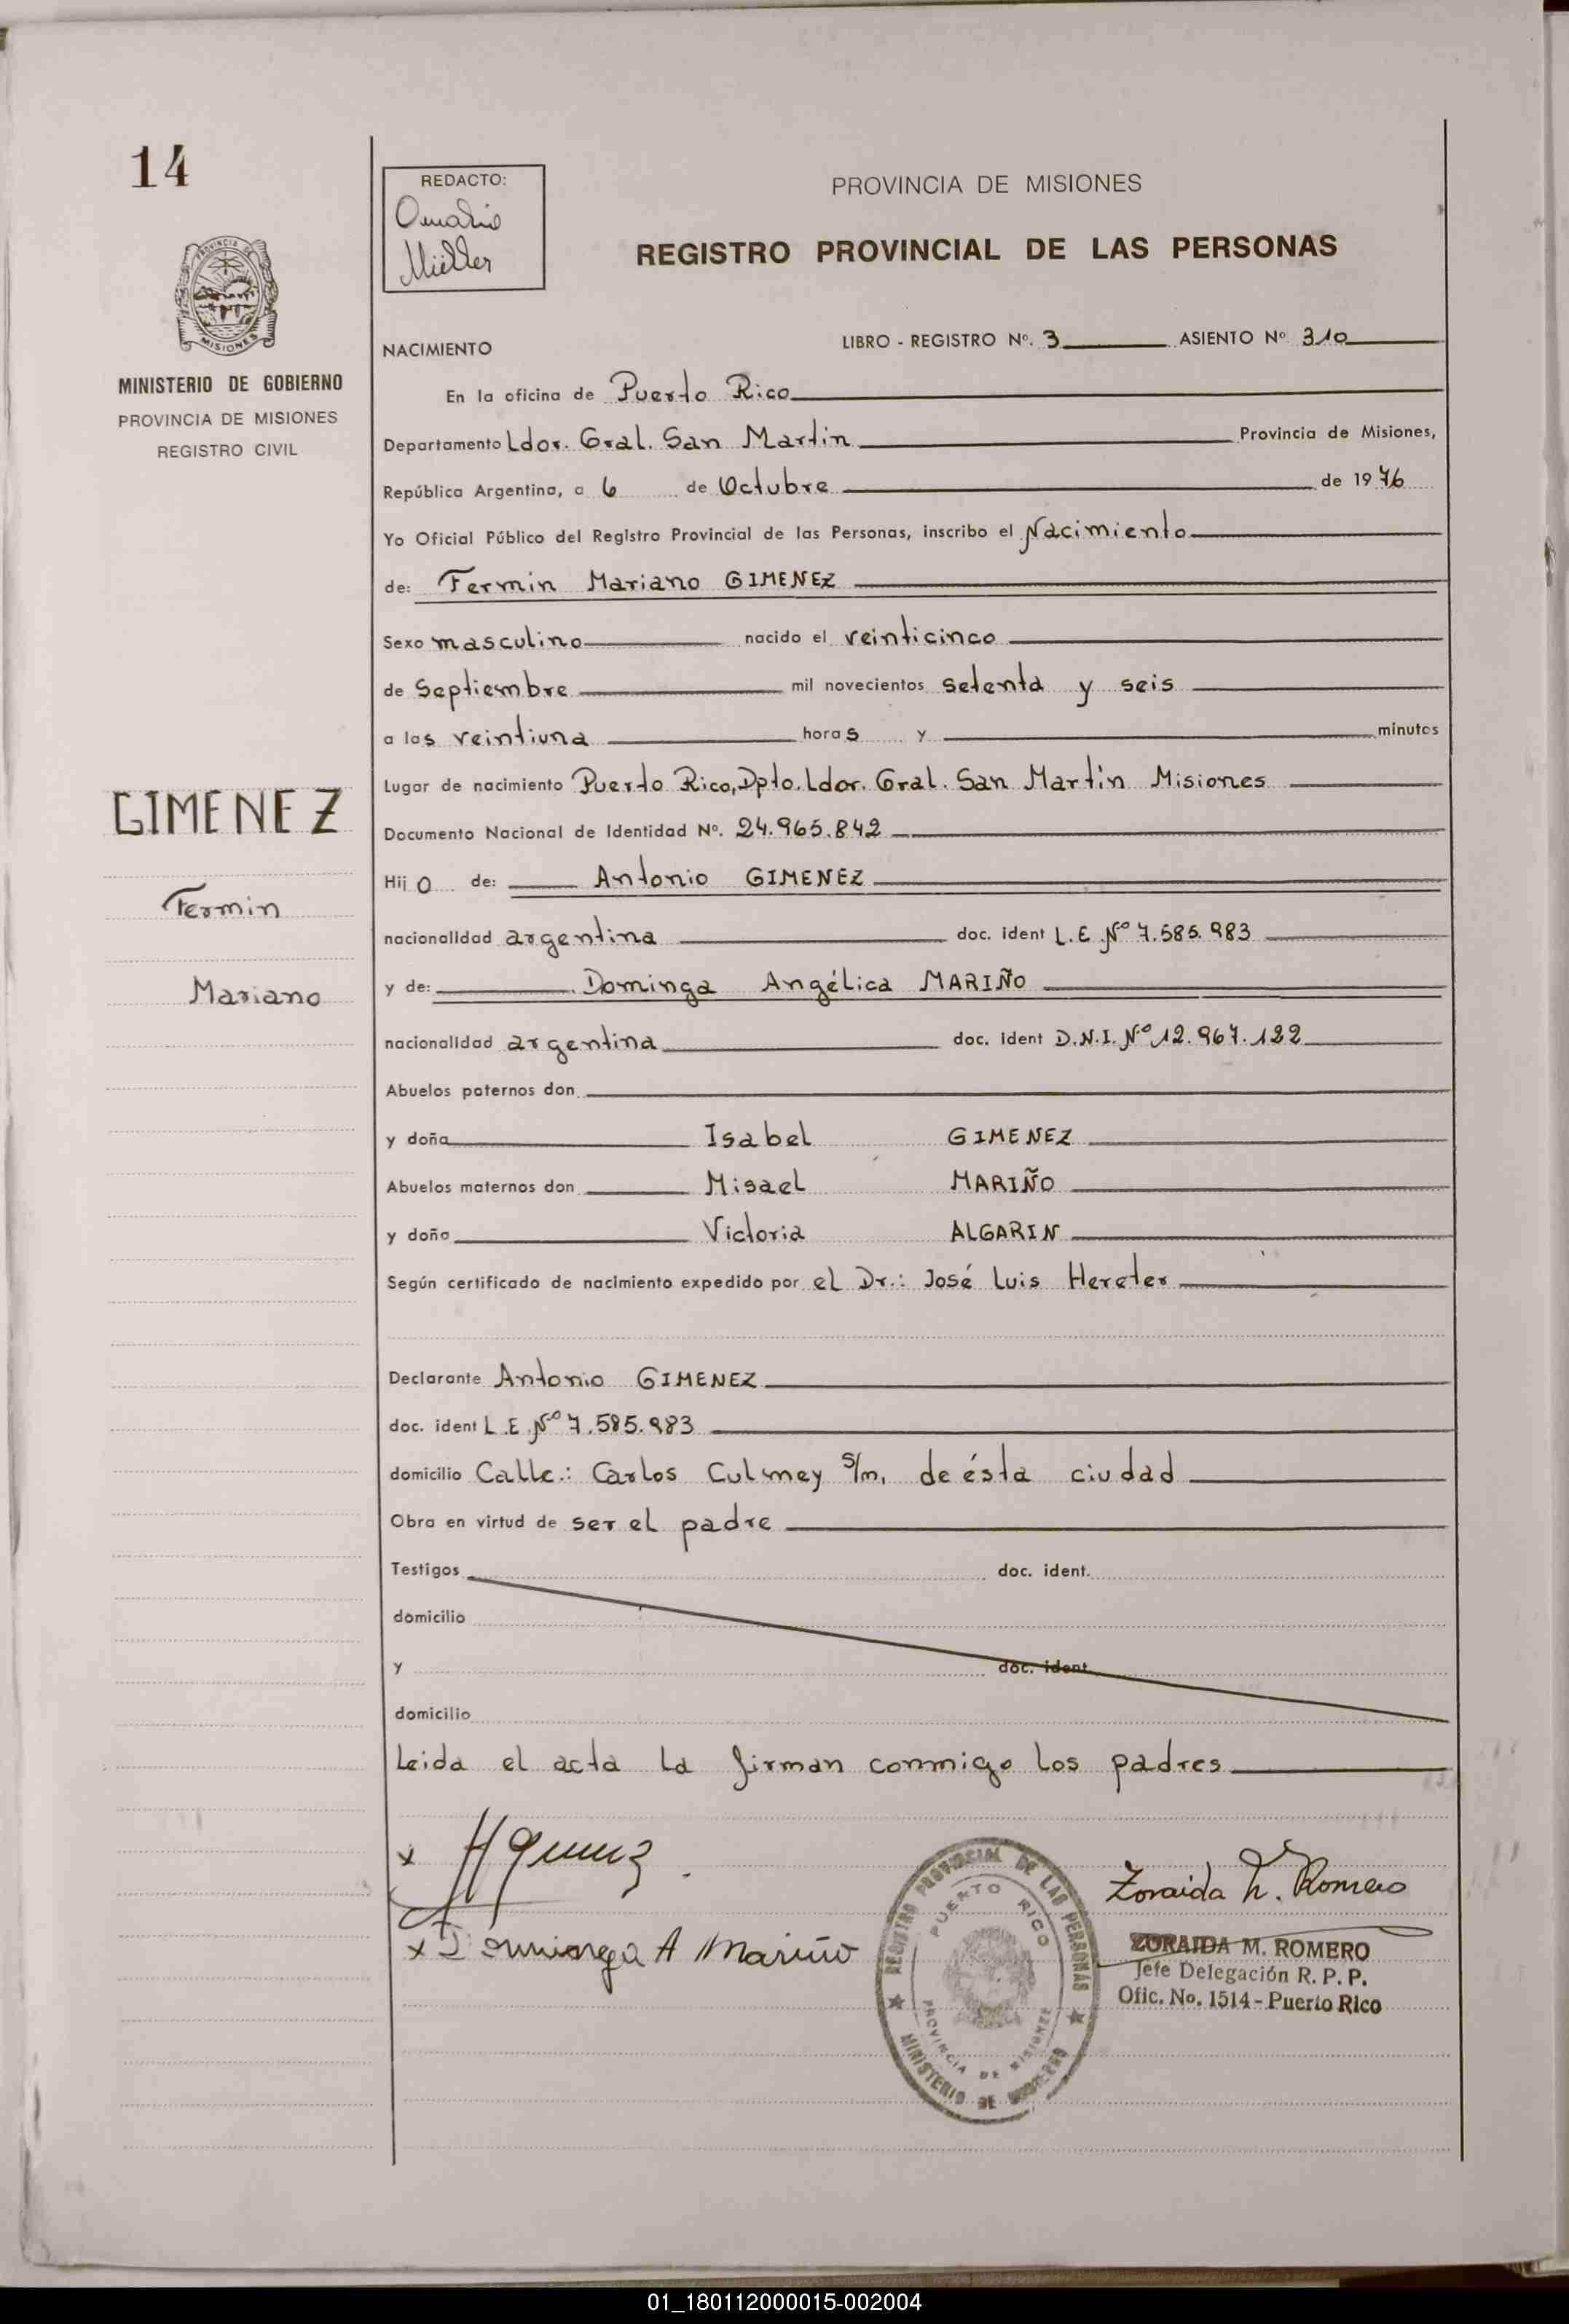 14
REDACTO:
Müller
PROVINCIA DE MISIONES
REGISTRO PROVINCIAL DE LAS PERSONAS
MINISTERIO DE GOBIERNO
PROVINCIA DE MISIONES
REGISTRO CIVIL
NACIMIENTO
LIBRO - REGISTRO Nº. 3 ASIENTO Nº 310
En la oficina de Puerto Rico
Departamento Ldor. Gral. San Martin Provincia de Misiones,
República Argentina, a 6 de Octubre de 1976
Yo Oficial Público del Registro Provincial de las Personas, inscribo el Nacimiento
de: Fermin Mariano GIMENEZ
Sexo masculino nacido el veinticinco
de Septiembre mil novecientos setenta y seis
a las veintiuna horas y minutos
Lugar de nacimiento Puerto Rico, Dpto. Ldor. Gral. San Martin Misiones
GIMENEZ
Fermin
Mariano
Documento Nacional de Identidad Nº. 24.965.842
Hijo de: Antonio GIMENEZ
nacionalidad argentina doc. ident L.E. Nº 7.585.983
y de: Dominga Angélica MARIÑO
nacionalidad argentina doc. ident D.N.I. Nº 12.967.122
Abuelos paternos don
y doña Isabel GIMENEZ
Abuelos maternos don Misael MARIÑO
y doña Victoria ALGARIN
Según certificado de nacimiento expedido por el Dr.: José Luis Hereter
Declarante Antonio GIMENEZ
doc. ident L.E. Nº 7.585.983
domicilio Calle.: Carlos Culmey s/n, de ésta ciudad
Obra en virtud de ser el padre
Testigos doc. ident.
domicilio
y doc. ident
domicilio
Leida el acta la firman conmigo los padres
x
x Dominga A Mariño
REGISTRO PROVINCIAL DE LAS PERSONAS
PUERTO RICO
PROVINCIA DE MISIONES
MINISTERIO DE GOBIERNO
Zoraida M. Romero
ZORAIDA M. ROMERO
Jefe Delegación R. P. P.
Ofic. No. 1514 - Puerto Rico
01_180112000015-002004